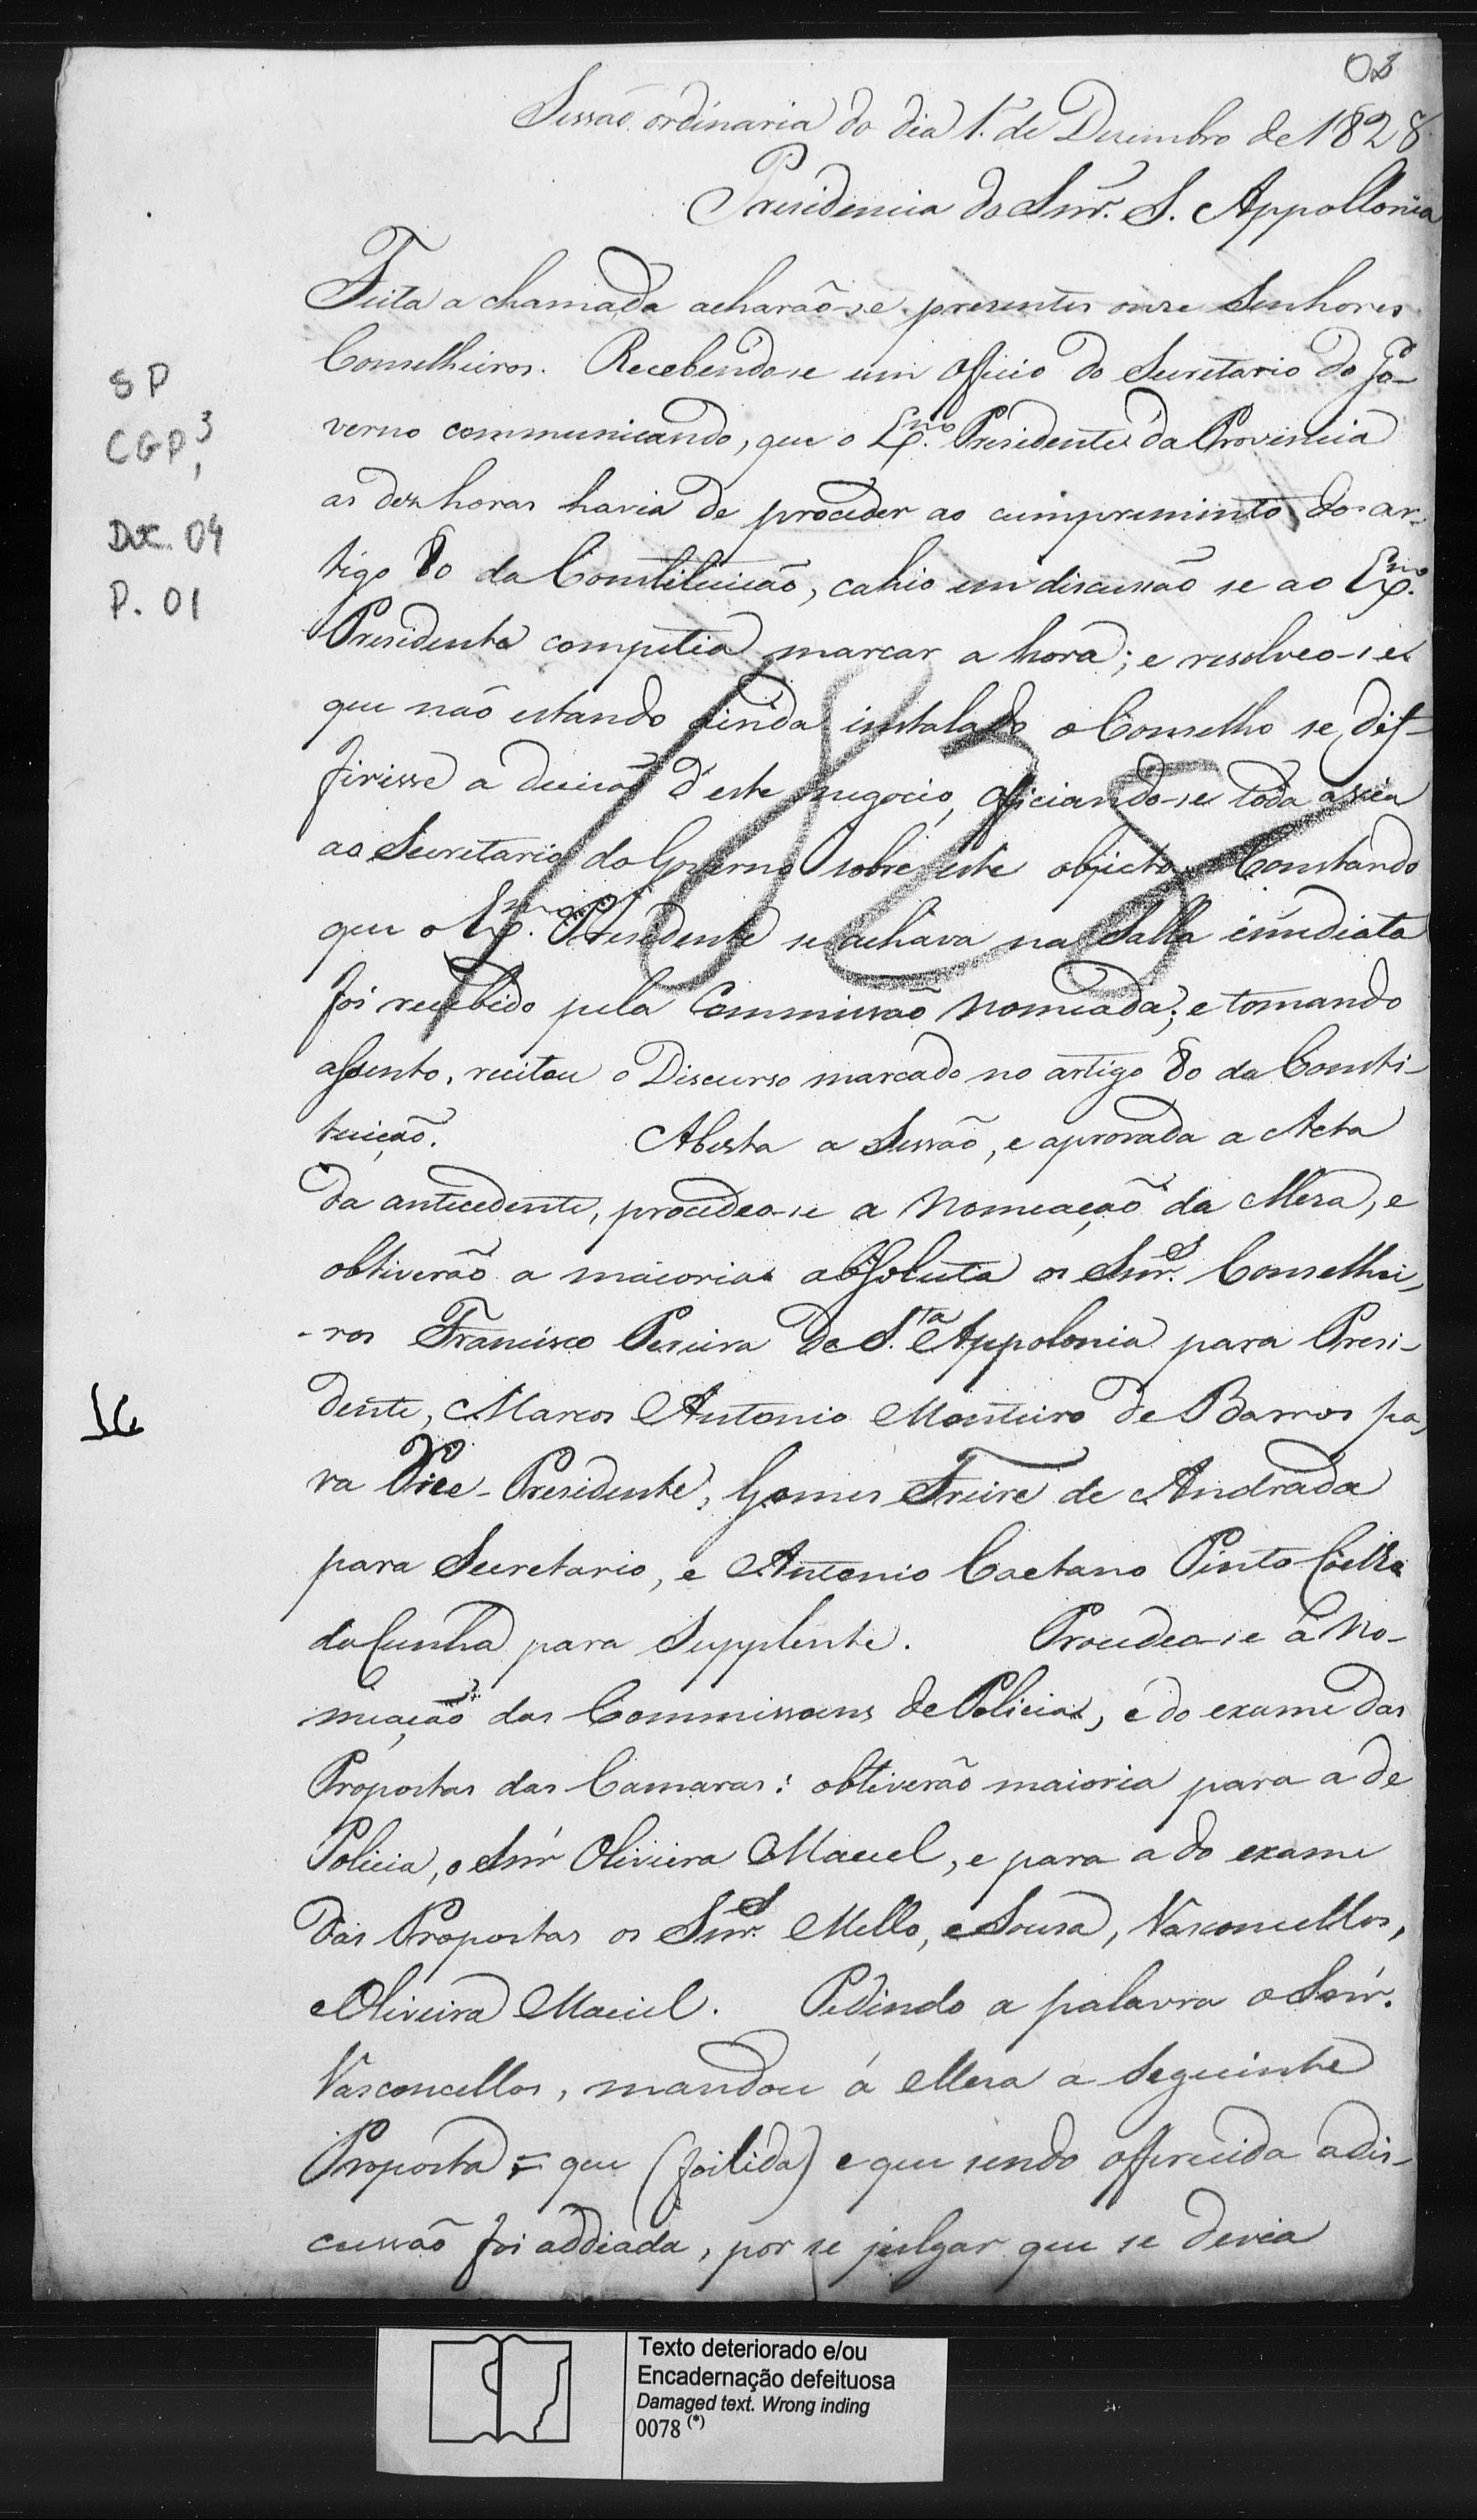 Sessão ordinaria do dia 1º de Dezembro de 1828
Presidencia do Snr. S. Appollonia
Feita a chamada acharão-se presentes onze Senhores
Conselheiros. Recebendo-se um Officio do Secretario do Go-
verno communicando, que o Exmo. Presidente da Provincia
as dez horas havia de proceder ao cumprimento do ar-
tigo 80 da Constituição, cahio em discussão se ao Exmo.
Presidente competia marcar a hora; e resolveo-se
que não estando ainda instalado o Conselho se dif-
firisse a decisão d'este negocio, officiando-se toda a via
ao Secretario do Governo sobre este objecto. Constando
que o Exmo. Presidente se achava na Salla immediata
foi recebido pela Commissão nomeada; e tomando
assento, recitou o Discurso marcado no artigo 80 da Consti-
tuição. Aberta a Sessão, e aprovada a Acta
da antecedente, procedeo-se a Nomeação da Mesa, e
obtiverão a maioria absoluta os Snrs. Conselhei-
-ros Francisco Pereira de S.ta Appolonia para Presi-
dente, Marcos Antonio Monteiro de Barros pa-
ra Vice-Presidente, Gomes Freire de Andrada
para Secretario, e Antonio Caetano Pinto Coelho
da Cunha para Supplente. Procedeo-se á No-
meação das Commissoens de Policia, e do exame das
Propostas das Camaras: obtiverão maioria para a de
Policia, o Snr Oliveira Maciel, e para a do exame
das Propostas os Snrs. Mello, e Sousa, Vasconcellos,
e Oliveira Maciel. Pedindo a palavra o Snr.
Vasconcellos, mandou á Mesa a Seguinte
Proposta = que (foi lida) e que sendo offerecida a dis-
cussão foi addiada, por se julgar que se devia
SP
CGP¹ 3
Doc. 04
P. 01
Texto deteriorado e/ou
Encadernação defeituosa
Damaged text. Wrong inding
0078 (*)